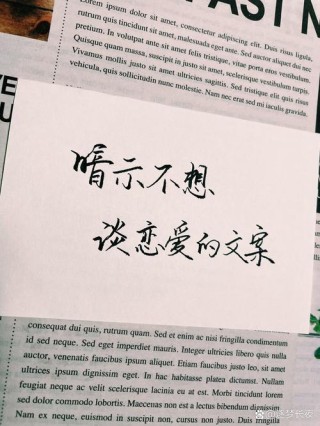 Lorem ipsum dolor sit amet, consectetur adipiscing elit. Duis risus ligula,
rutrum quis tincidunt sit amet, malesuada eget ante. Sed auctor aliquet dui nec
pretium. In volutpat ante sit amet felis tristique, vitae porta eros vestibulum.
Quisque quam massa, suscipit in justo sit amet, scelerisque vestibulum turpis.
Vivamus mollis justo sit amet ultricies sagittis. Sed tristique elit quis risus
vehicula, quis sollicitudin nunc molestie. Nam nec erat sed mi iaculis gravida.
暗示不想
谈恋爱的文案
consequat dui quis, rutrum quam. Sed et enim ac nisi fringilla condimentum
id sed neque. Sed eget imperdiet mauris. Integer ultricies libero quis nulla
auctor, venenatis faucibus ipsum aliquet. Etiam faucibus justo leo, sit amet
ultrices ipsum dignissim eget. In hac habitasse platea dictumst. Nullam
feugiat neque ac velit scelerisque lacinia eu at est. Morbi tincidunt orci
sed dolor commodo lobortis. Maecenas non est a lectus bibendum dignissim
Nam ex neque, euismod in suscipit non, cursus non justo. Duis